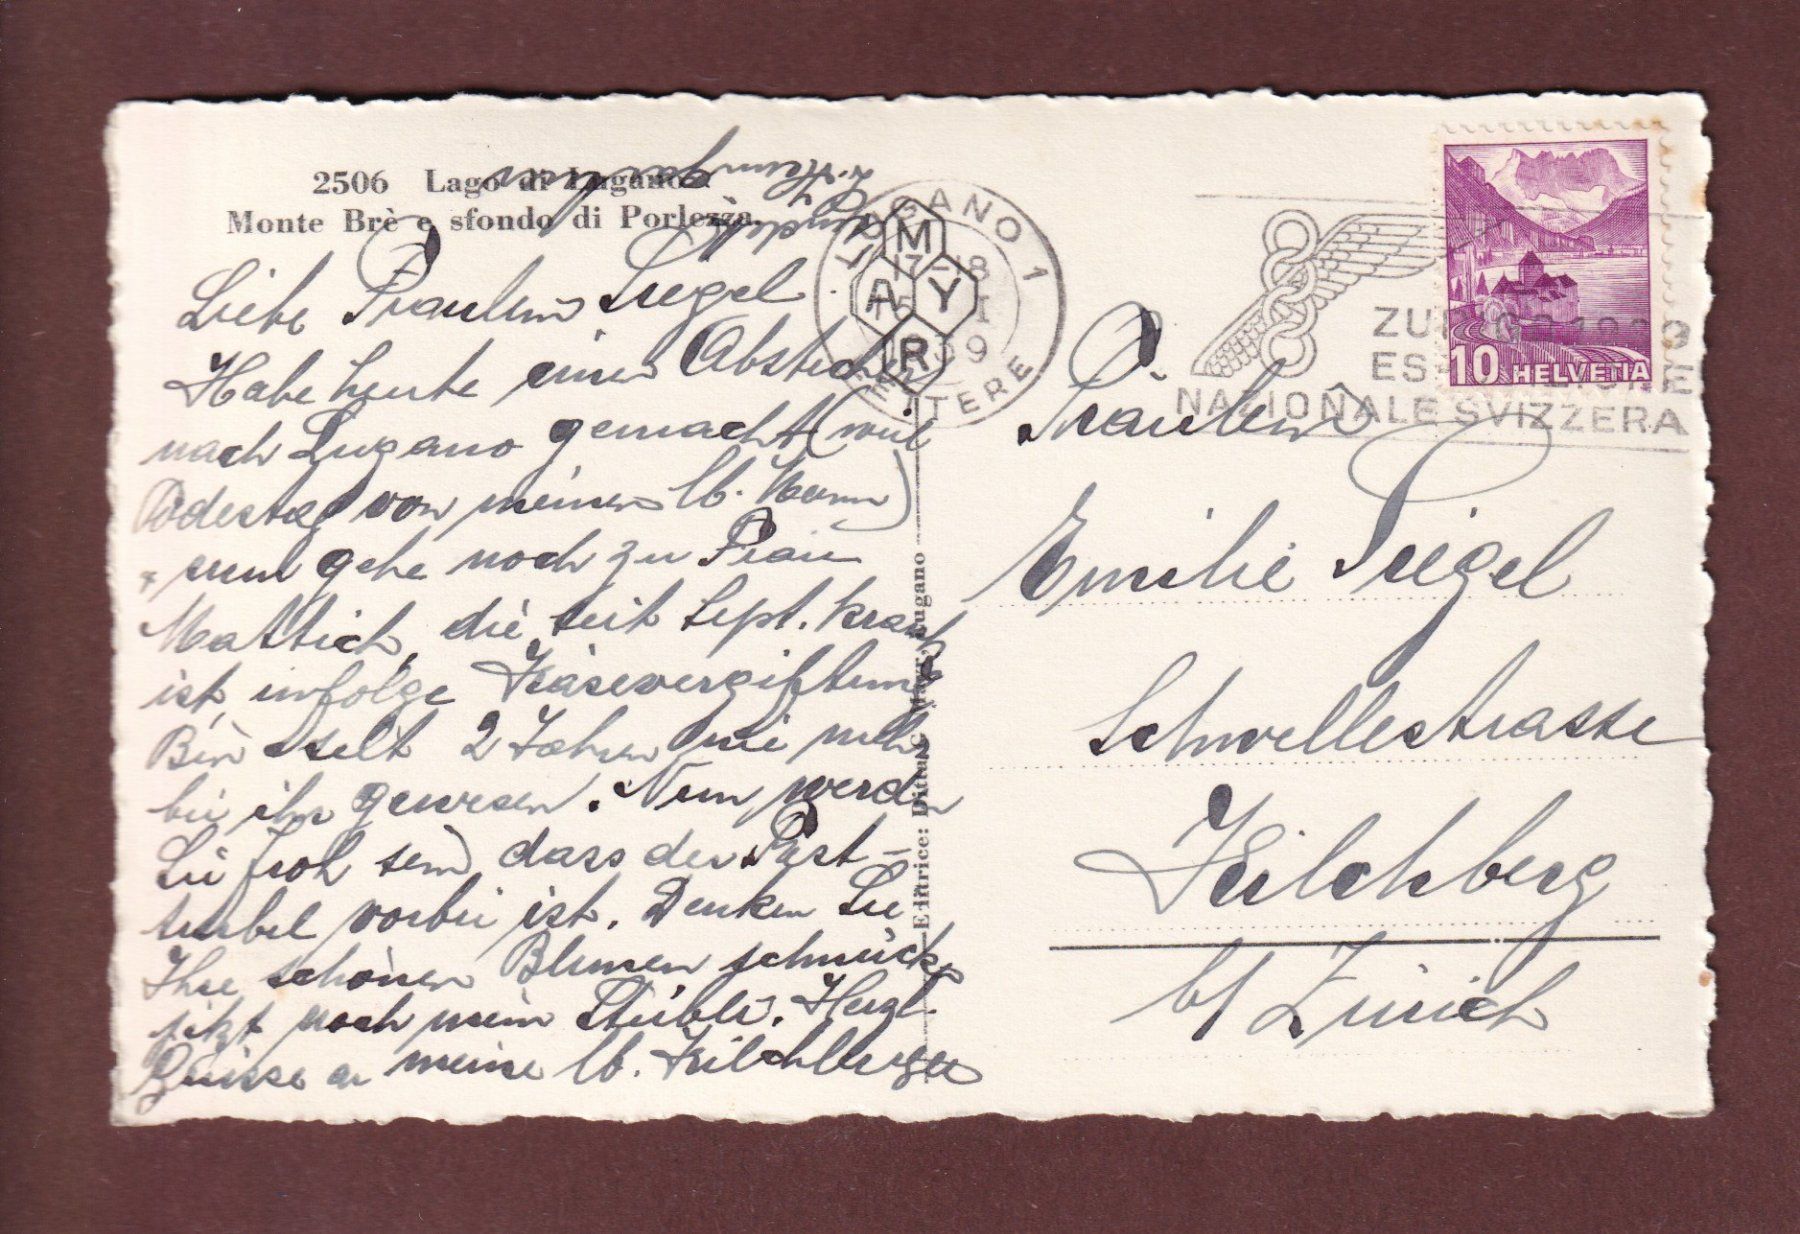 2506 Lago di Lugano.
Monte Brè e sfondo di Porlezza.
Liebe Fräulein Siegel
Habe heute einen Abstecher
nach Lugano gemacht (weil
Todestag von meinem lb. Mann)
und gehe noch zu Frau
Mattich, die seit Sept. krank
ist, infolge Käsevergiftung
Bin seit 2 Jahren nie mehr
bei ihr gewesen. Nun werden
Sie froh sein dass der Fest-
trubel vorbei ist. Denken Sie
Ihre schönen Blumen schmücken
jetzt noch mein Stübli. Herzl.
Grüsse an meine lb. Kilchberger
Editrice: Ditta C. Mayr, Lugano
MAYR
LUGANO 1
17-18
LETTERE
ZURIGO 1939
ESPOSIZIONE
NAZIONALE SVIZZERA
10 HELVETIA
Fräulein
Emilie Siegel
Schwellestrasse
Kilchberg
b/ Zürich